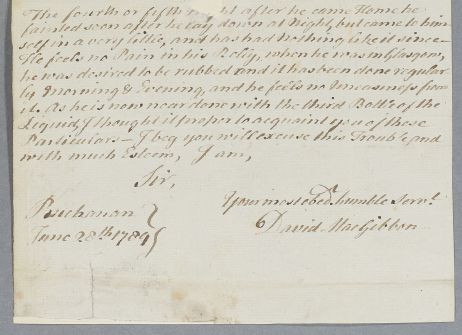 The fourth or fifth night after he came Home he
fainted soon after he lay down at Night, but came to him
self in a very little, and has had Nothing like it since —
He feels no Pain in his Belly, when he was in Glasgow,
he was desired to be rubbed and it has been done regular
ly Morning & Evening, and he feels no Uneasiness from
it. As he is now near done with the third Bottle of the
Liquid, I thought it proper to acquaint you of these
Particulars — I beg you will excuse this Trouble and
with much Esteem, I am,
Sir,
Your most obedt. humble Servt.
Buchanan
June 28th 1789
David MacGibbon